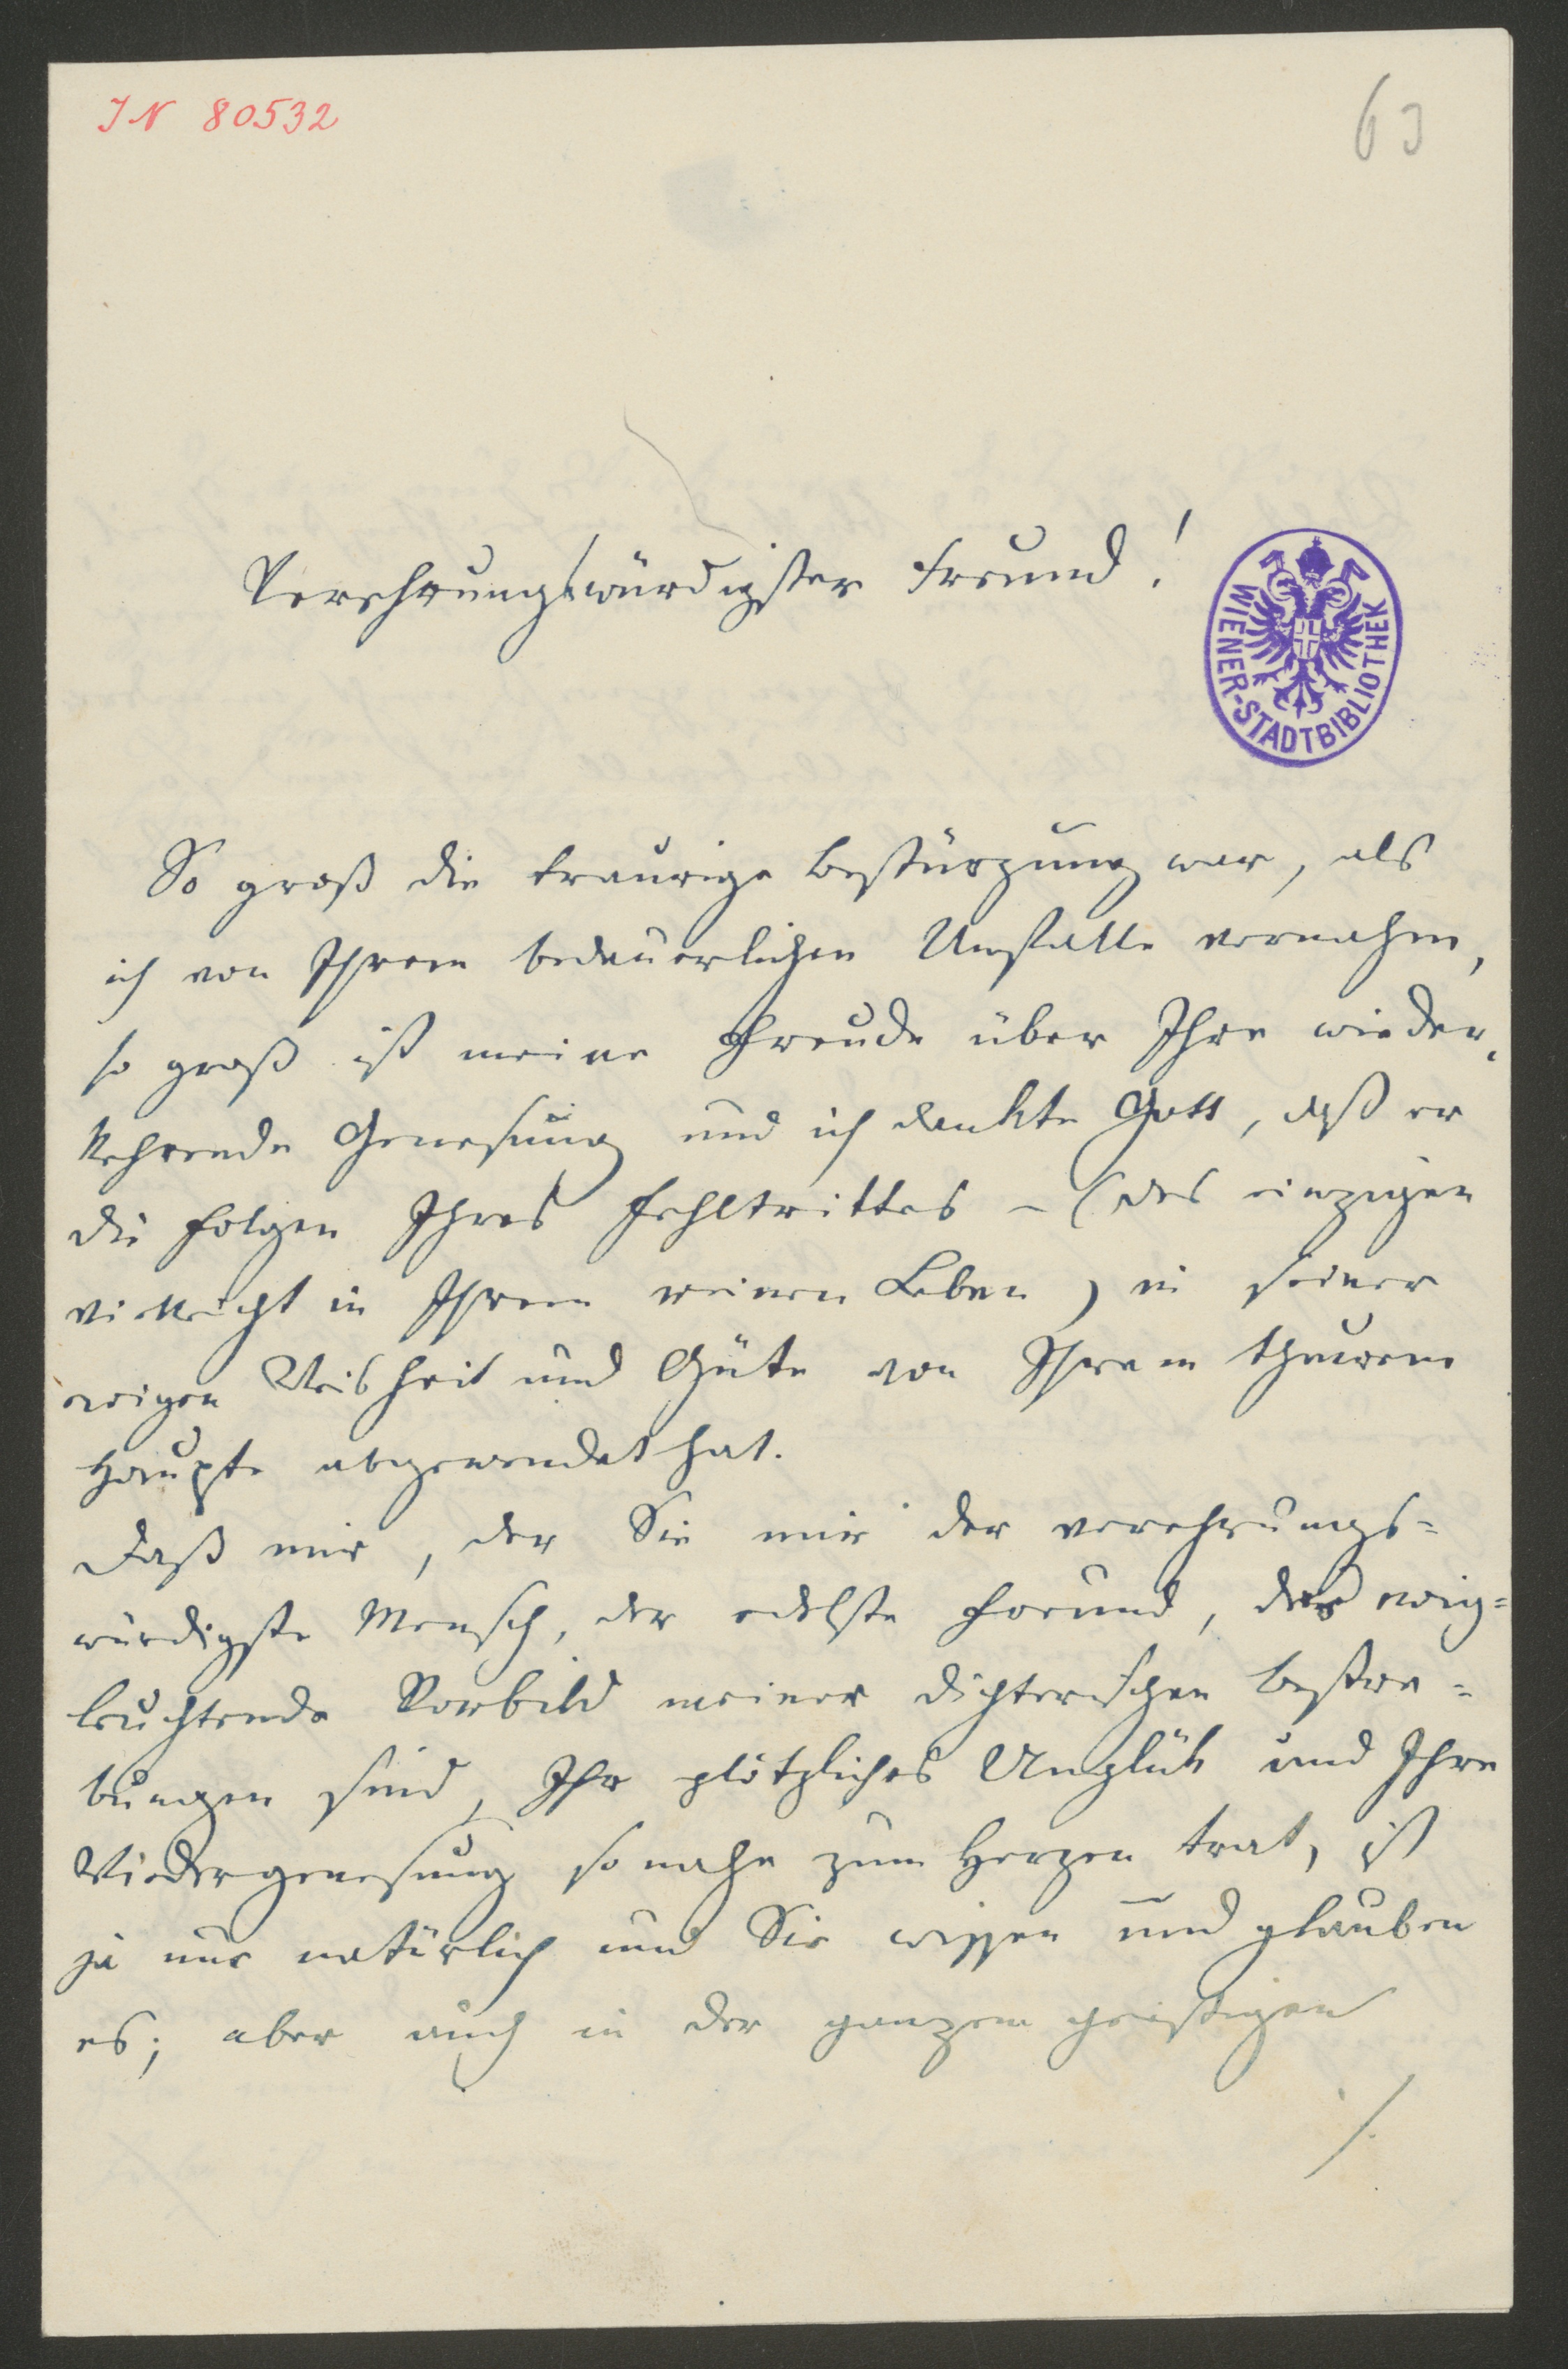 IN 80532
63
Verehrungswürdigster Freund!
WIENER-STADTBIBLIOTHEK
So groß die traurige Bestürzung war, als
ich von Ihrem bedauerlichen Unfalle vernahm,
so groß ist meine Freude über Ihre wieder-
kehrende Genesung und ich dankte Gott, daß er
die Folgen Ihres Fehltrittes – (des einzigen
vielleicht in Ihrem reinen Leben) in seiner
ewigen Weisheit und Güte von Ihrem theuren
Haupte abgewendet hat.
Daß mir, der Sie mir der verehrungs=
würdigste Mensch, der edelste Freund, das ewig=
leuchtende Vorbild meiner dichterischen Bestre=
bungen sind, Ihr plötzliches Unglük und Ihre
Wiedergenesung so nahe zum Herzen trat, ist
ja nur natürlich und Sie wissen und glauben
es; aber auch in der ganzen geistigen
./.